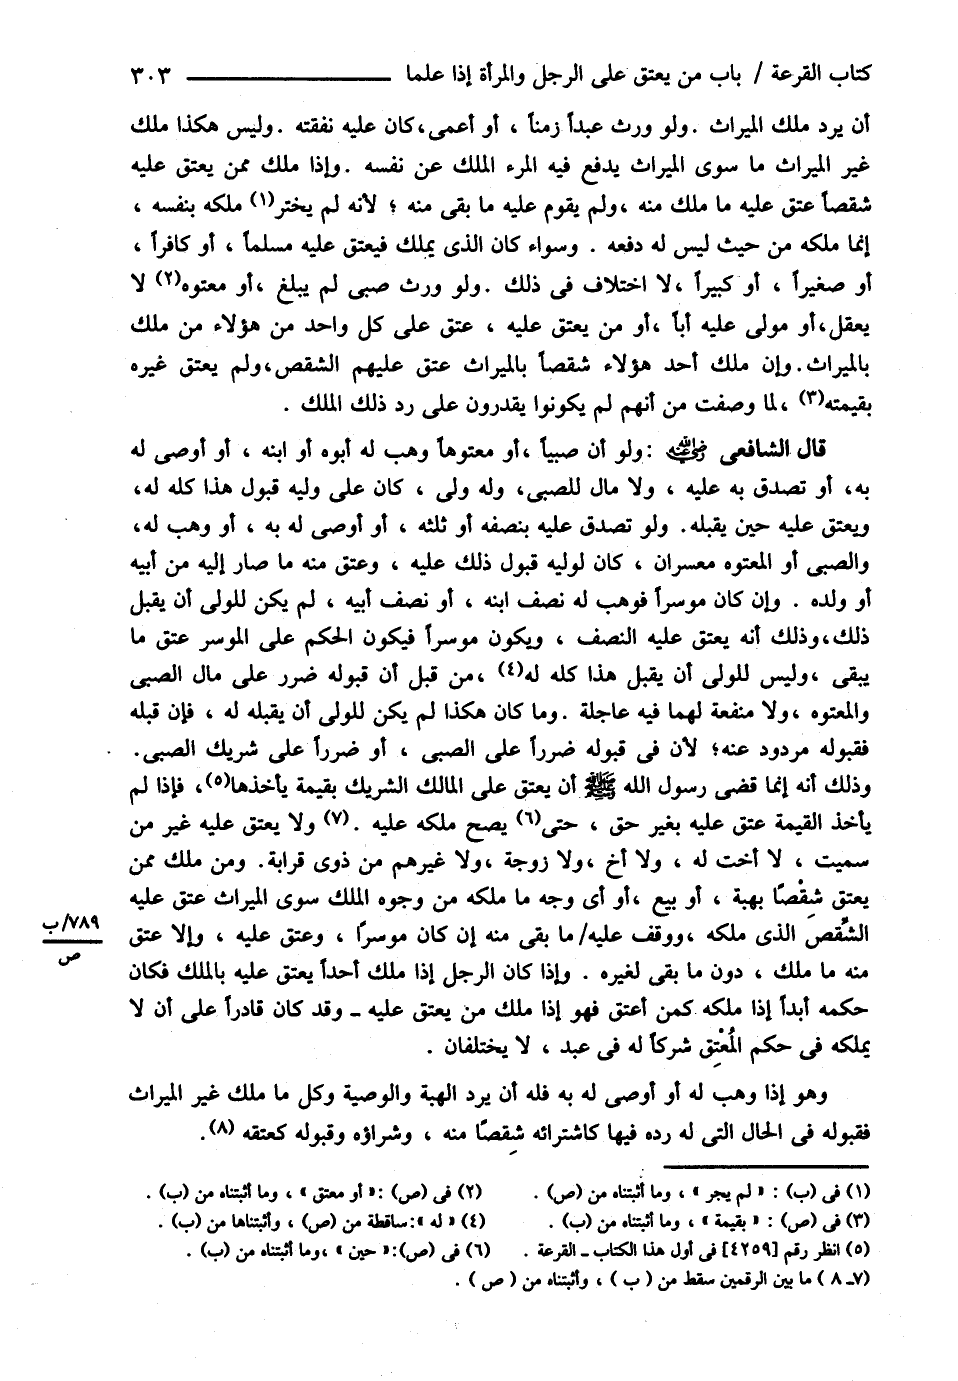 كتاب القرعة / باب من يعتق على الرجل والمرأة إذا علما ٣٠٣
أن يرد ملك الميراث . ولو ورث عبداً زمناً ، أو أعمى، كان عليه نفقته . وليس هكذا ملك
غير الميراث ما سوى الميراث يدفع فيه المرء الملك عن نفسه . وإذا ملك ممن يعتق عليه
شقصاً عتق عليه ما ملك منه ، ولم يقوم عليه ما بقى منه ؛ لأنه لم يختر(١) ملكه بنفسه ،
إنما ملكه من حيث ليس له دفعه . وسواء كان الذى يملك فيعتق عليه مسلماً ، أو كافراً ،
أو صغيراً ، أو كبيراً ، لا اختلاف فى ذلك . ولو ورث صبى لم يبلغ ، أو معتوه(٢) لا
يعقل، أو مولى عليه أباً ، أو من يعتق عليه ، عتق على كل واحد من هؤلاء من ملك
بالميراث . وإن ملك أحد هؤلاء شقصاً بالميراث عتق عليهم الشقص، ولم يعتق غيره
بقيمته(٣) ، لما وصفت من أنهم لم يكونوا يقدرون على رد ذلك الملك .
قال الشافعى رضي الله عنه : ولو أن صبياً ، أو معتوهاً وهب له أبوه أو ابنه ، أو أوصى له
به، أو تصدق به عليه ، ولا مال للصبى، وله ولى ، كان على وليه قبول هذا كله له،
ويعتق عليه حين يقبله. ولو تصدق عليه بنصفه أو ثلثه ، أو أوصى له به ، أو وهب له،
والصبى أو المعتوه معسران ، كان لوليه قبول ذلك عليه ، وعتق منه ما صار إليه من أبيه
أو ولده . وإن كان موسراً فوهب له نصف ابنه ، أو نصف أبيه ، لم يكن للولى أن يقبل
ذلك، وذلك أنه يعتق عليه النصف ، ويكون موسراً فيكون الحكم على الموسر عتق ما
يبقى ، وليس للولى أن يقبل هذا كله له(٤) ، من قبل أن قبوله ضرر على مال الصبى
والمعتوه ، ولا منفعة لهما فيه عاجلة . وما كان هكذا لم يكن للولى أن يقبله له ، فإن قبله
فقبوله مردود عنه؛ لأن فى قبوله ضرراً على الصبى ، أو ضرراً على شريك الصبى.
وذلك أنه إنما قضى رسول الله ﷺ أن يعتق على المالك الشريك بقيمة يأخذها(٥)، فإذا لم
يأخذ القيمة عتق عليه بغير حق ، حتى(٦) يصح ملكه عليه .(٧) ولا يعتق عليه غير من
سميت ، لا أخت له ، ولا أخ ، ولا زوجة ، ولا غيرهم من ذوى قرابة. ومن ملك ممن
يعتق شِقْصًا بهبة ، أو بيع ، أو أى وجه ما ملكه من وجوه الملك سوى الميراث عتق عليه
الشِّقْص الذى ملكه ، ووقف عليه/ ما بقى منه إن كان موسرًا ، وعتق عليه ، وإلا عتق
٧٨٩/ب
ص
منه ما ملك ، دون ما بقى لغيره . وإذا كان الرجل إذا ملك أحداً يعتق عليه بالملك فكان
حكمه أبداً إذا ملكه كمن أعتق فهو إذا ملك من يعتق عليه ــ وقد كان قادراً على أن لا
يملكه فى حكم المُعْتِق شركاً له فى عبد ، لا يختلفان .
وهو إذا وهب له أو أوصى له به فله أن يرد الهبة والوصية وكل ما ملك غير الميراث
فقبوله فى الحال التى له رده فيها كاشترائه شِقصًا منه ، وشراؤه وقبوله كعتقه (٨).
(١) فى (ب) : « لم يجر » ، وما أثبتناه من (ص) . (٢) فى (ص) :« أو معتق » ، وما أثبتناه من (ب) .
(٣) فى (ص) : « بقيمة » ، وما أثبتناه من (ب) . (٤) « له »:ساقطة من (ص) ، وأثبتناها من (ب) .
(٥) انظر رقم [٤٢٥٩] فى أول هذا الكتاب ــ القرعة . (٦) فى (ص):« حين » ، وما أثبتناه من (ب) .
(٧ــ ٨ ) ما بين الرقمين سقط من ( ب ) ، وأثبتناه من ( ص ) .